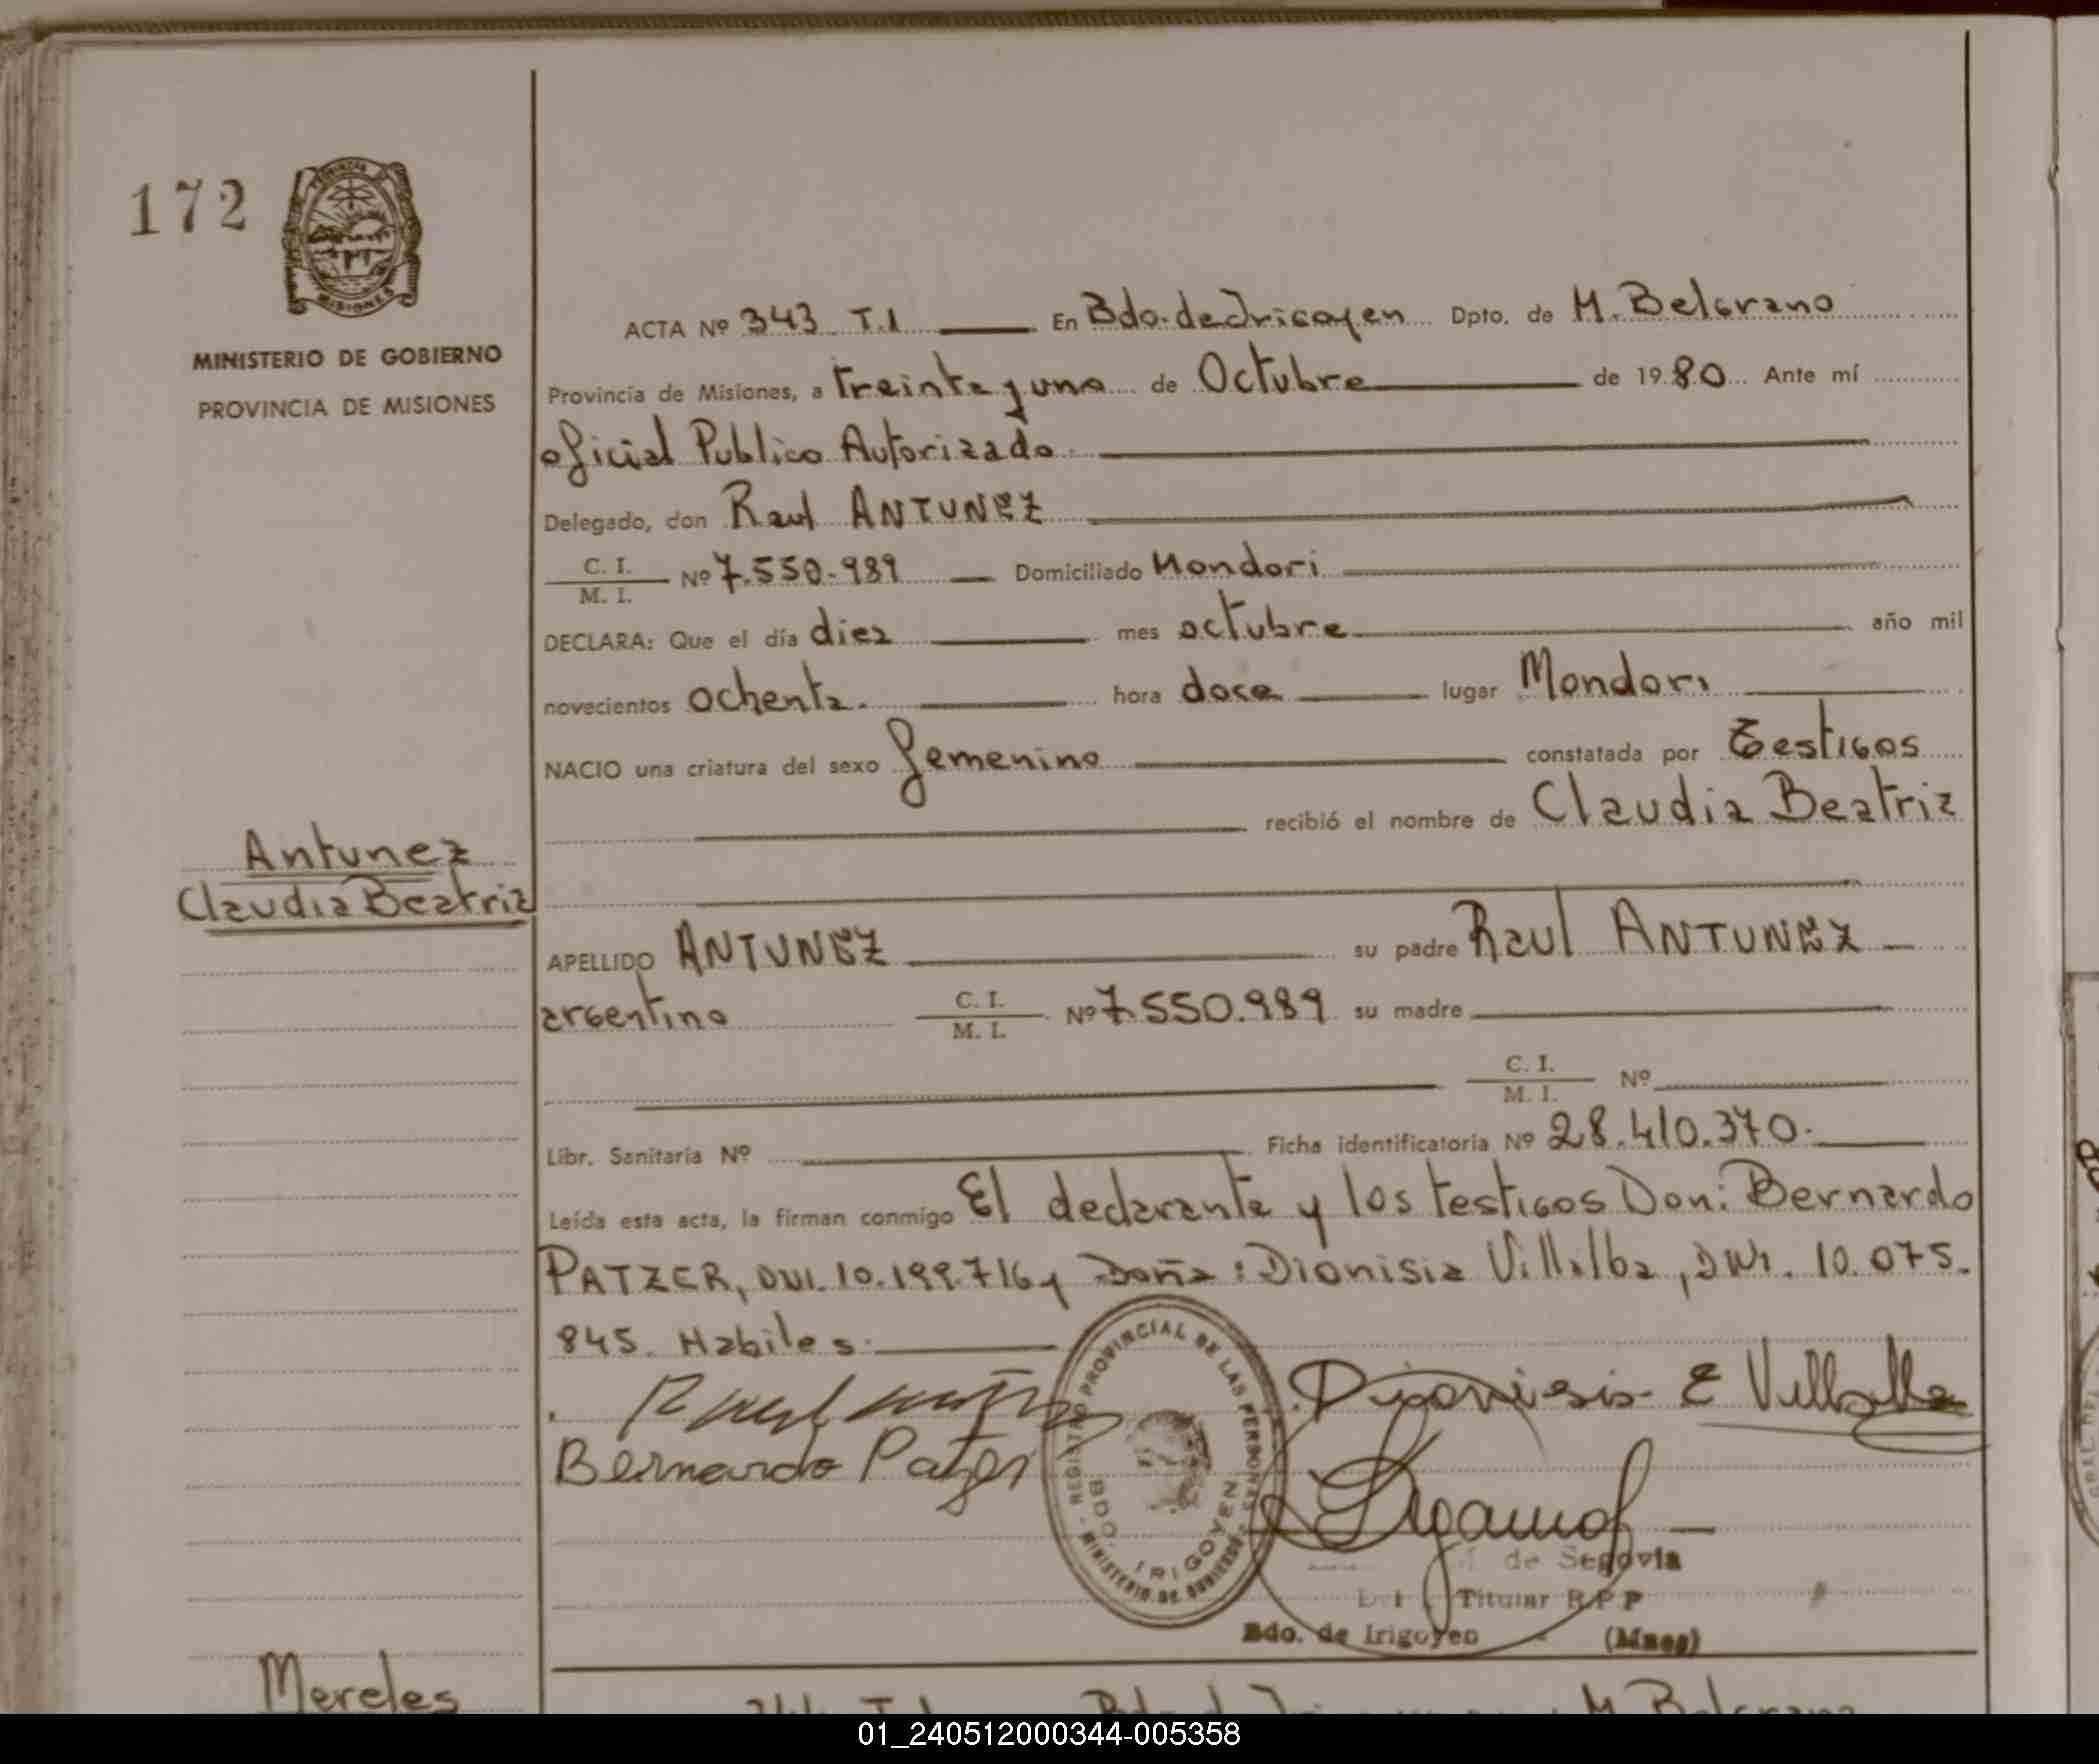 172
PROVINCIA
MISIONES
MINISTERIO DE GOBIERNO
PROVINCIA DE MISIONES
Antunez
Claudia Beatriz
Mereles
ACTA Nº 343 T.I En Bdo. de Irigoyen Dpto. de M. Belgrano
Provincia de Misiones, a treinta y uno de Octubre de 1980 Ante mí
oficial Publico Autorizado
Delegado, don Raul ANTUNEZ
C. I.
M. I. Nº 7.550.989 Domiciliado Mondori
DECLARA: Que el día diez mes octubre año mil
novecientos ochenta. hora doce lugar Mondori
NACIO una criatura del sexo femenino constatada por Testigos
recibió el nombre de Claudia Beatriz
APELLIDO ANTUNEZ su padre Raul ANTUNEZ
argentino C. I. M. I. Nº 7.550.989 su madre
C. I.
M. I. Nº
Libr. Sanitaria Nº Ficha identificatoria Nº 28.410.370.
Leída esta acta, la firman conmigo El declarante y los testigos Don: Bernardo
PATZER, DNI. 10.199.716 y Doña: Dionisia Villalba, DNI. 10.075.
845. Habiles.
Dionisia E Villalba
Bernardo Patzer
REGISTRO PROVINCIAL DE LAS PERSONAS
BDO. IRIGOYEN
MINISTERIO DE GOBIERNO
de Segovia
Titular R P P
Bdo. de Irigoyen (Mnes)
M. Belgrano
01_240512000344-005358